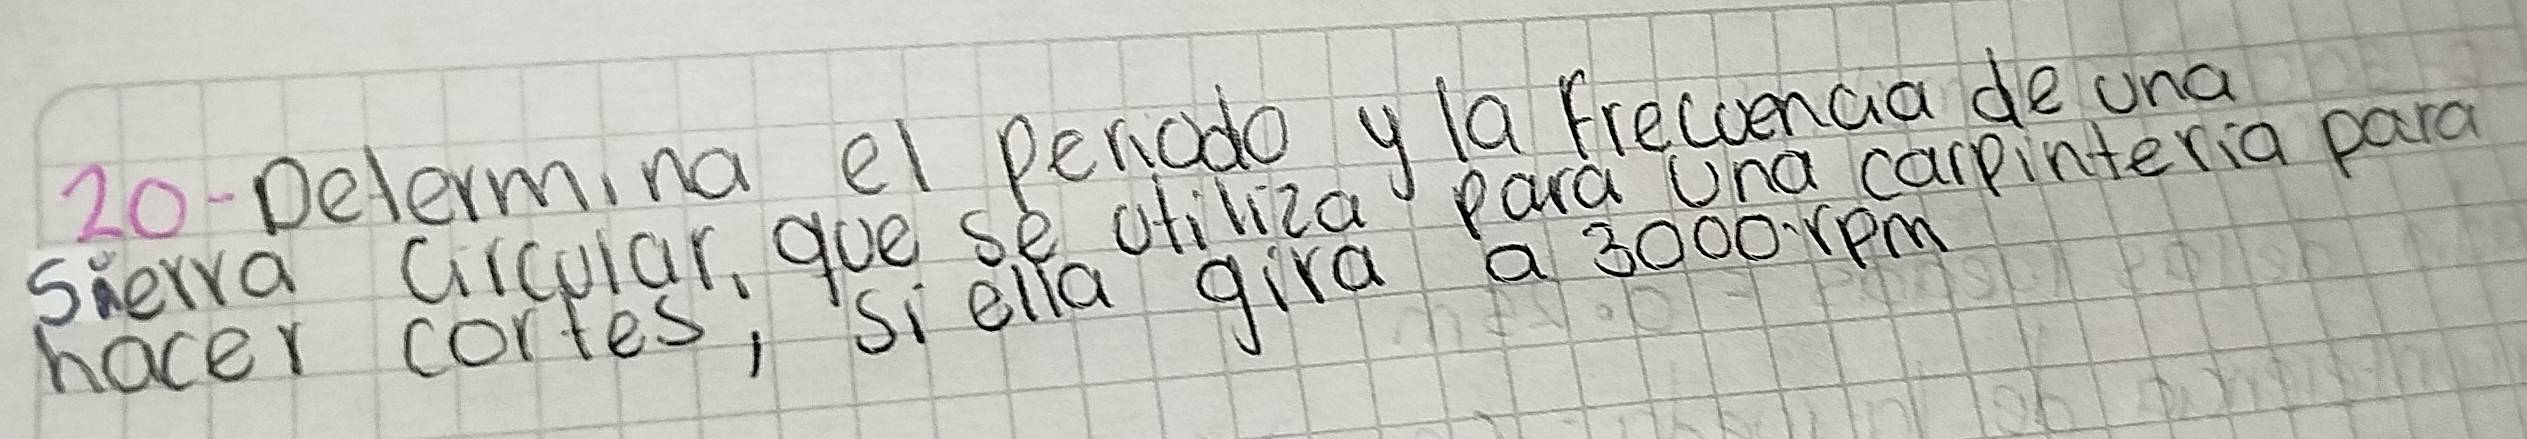 20-Determina el periodo y la frecuencia de una
sierra circular, que se utiliza para una carpinteria para
hacer cortes, si ella gira a 3000 rpm